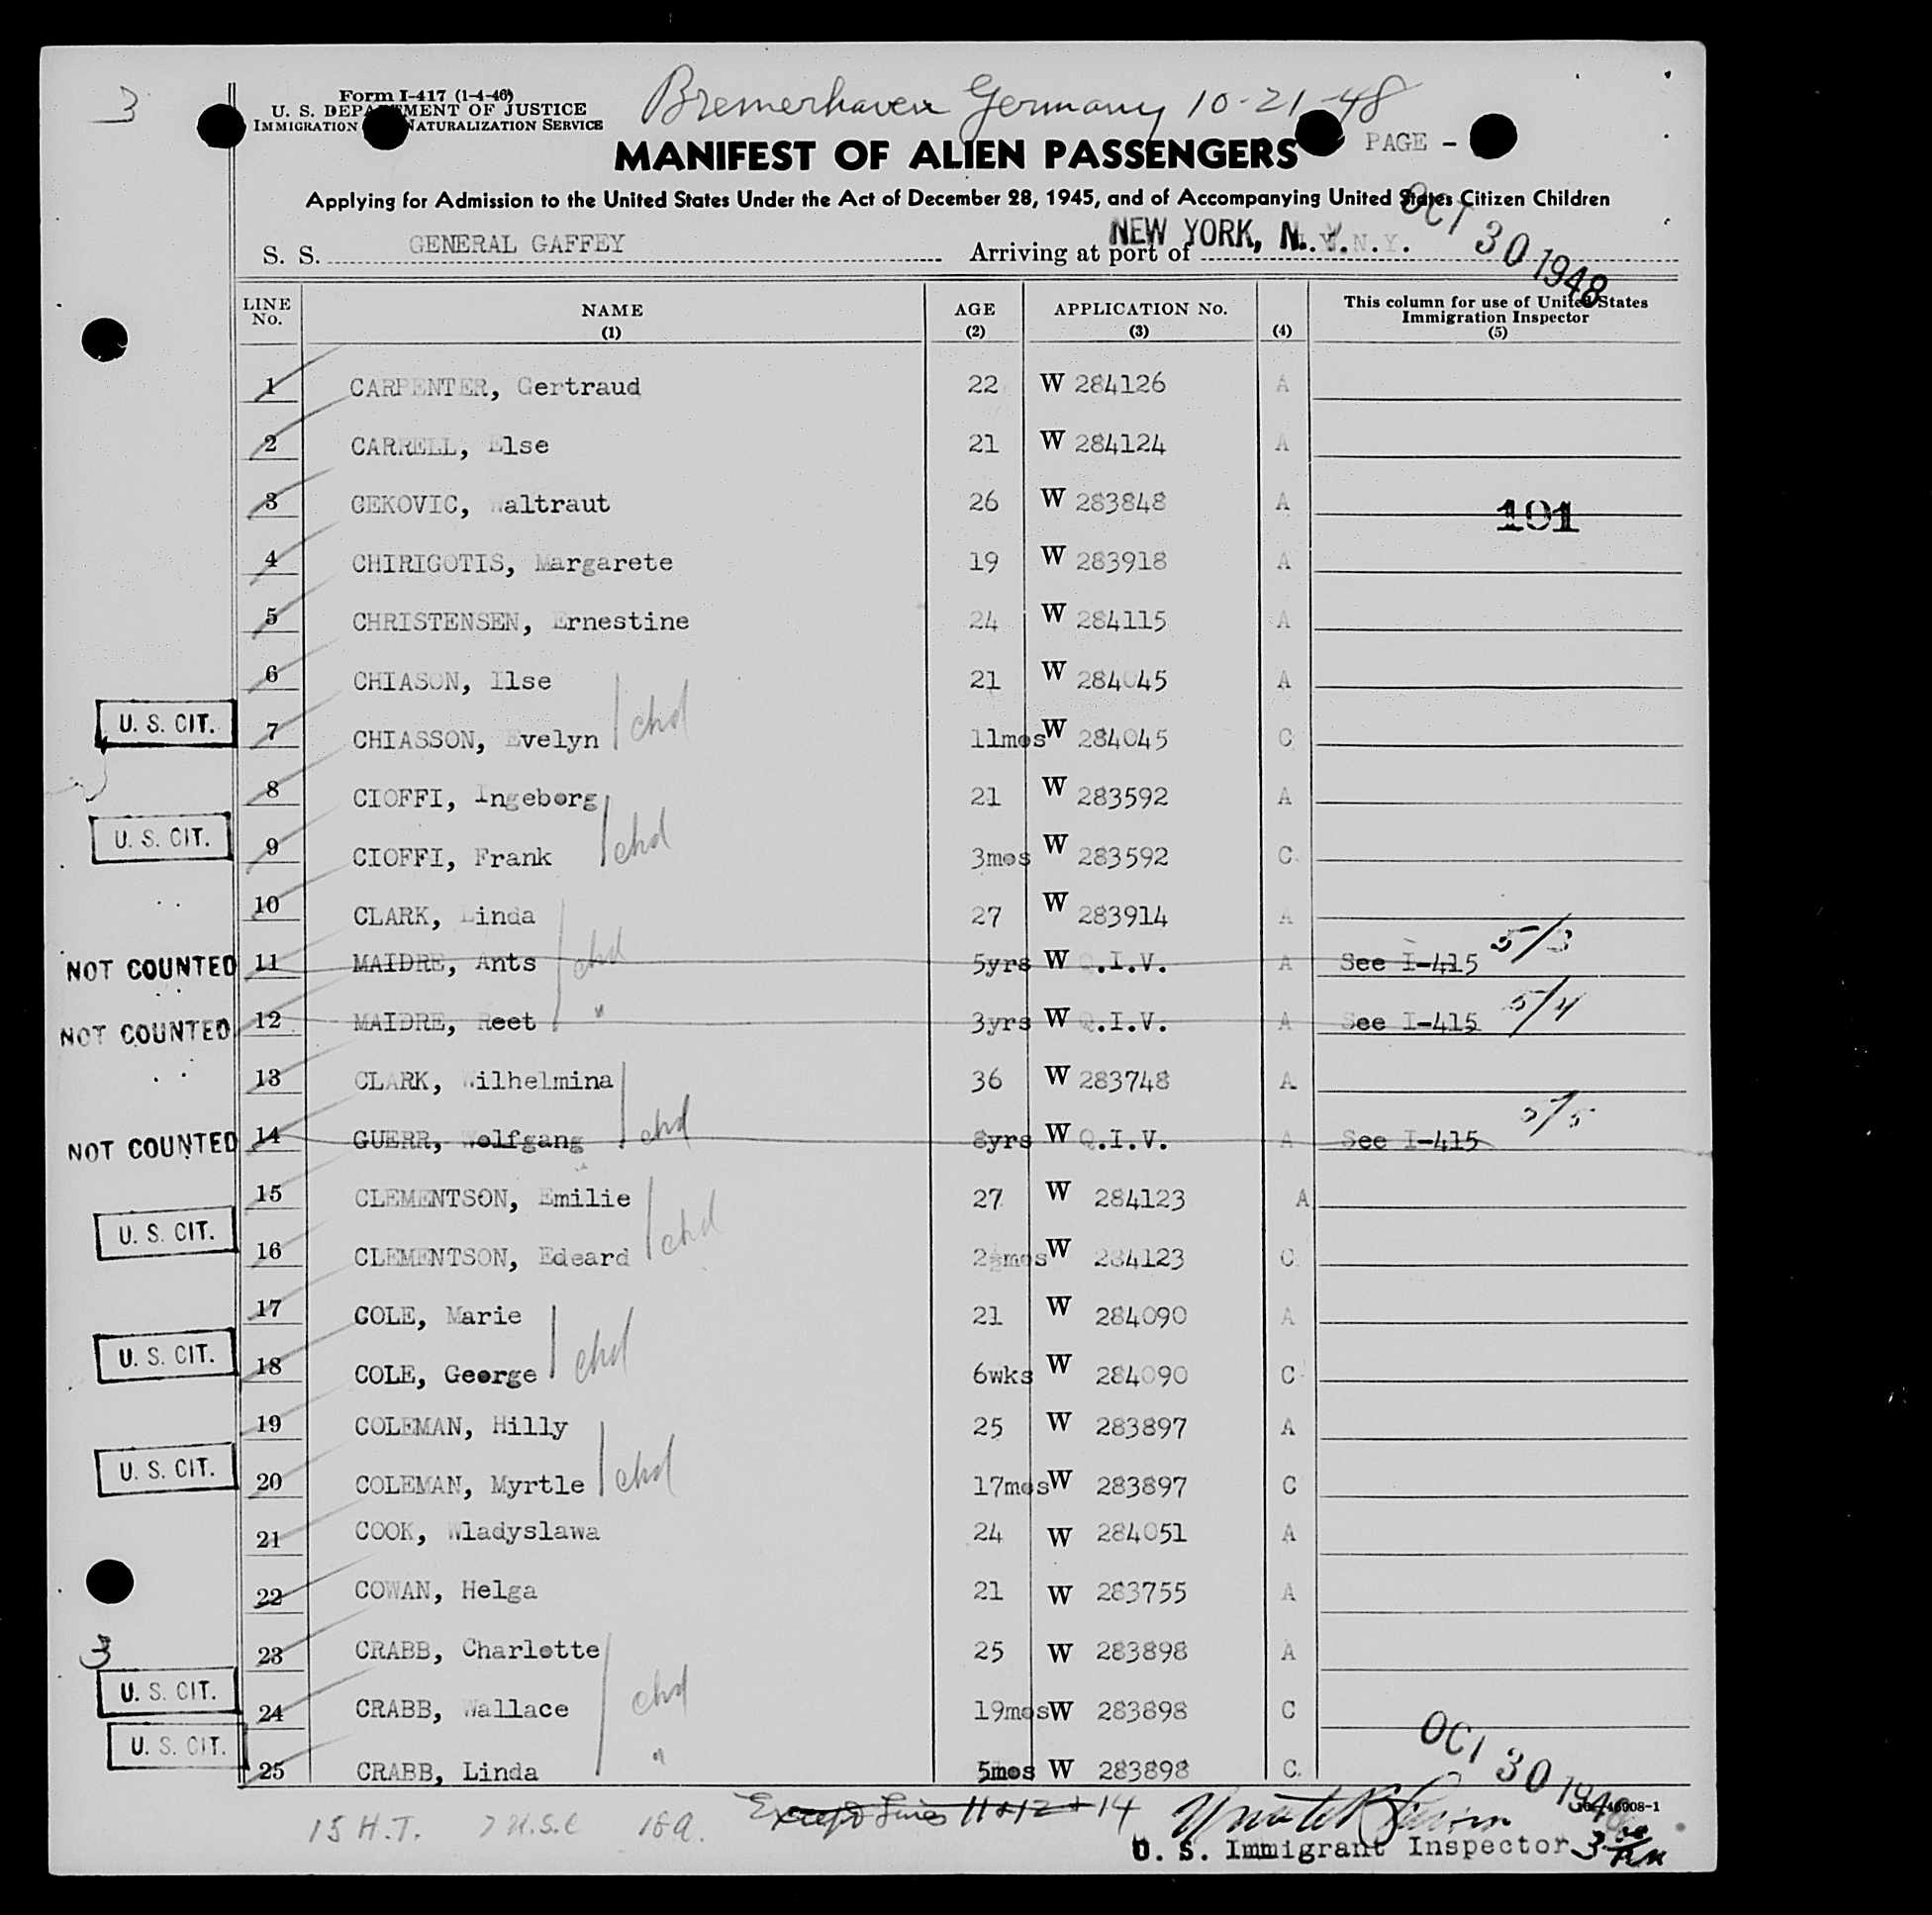 3
Form I-417 (1-4-46)
U. S. DEPARTMENT OF JUSTICE
IMMIGRATION NATURALIZATION SERVICE
Bremerhaven Germany 10-21-48
MANIFEST OF ALIEN PASSENGERS
PAGE -
Applying for Admission to the United States Under the Act of December 28, 1945, and of Accompanying United States Citizen Children
OCT 30 1948
S. S. GENERAL GAFFEY Arriving at port of NEW YORK, N. Y. N.Y.
LINE No. NAME (1) AGE (2) APPLICATION No. (3) (4) This column for use of United States Immigration Inspector (5)
1 CARPENTER, Gertraud 22 W 284126 A
2 CARRELL, Else 21 W 284124 A
3 CEKOVIC, Waltraut 26 W 283848 A 191
4 CHIRIGOTIS, Margarete 19 W 283918 A
5 CHRISTENSEN, Ernestine 24 W 284115 A
6 CHIASON, Ilse 21 W 284045 A
U. S. CIT. 7 CHIASSON, Evelyn chd 11mos W 284045 C
8 CIOFFI, Ingeborg 21 W 283592 A
U. S. CIT. 9 CIOFFI, Frank chd 3mos W 283592 C
10 CLARK, Linda 27 W 283914 A
NOT COUNTED 11 MAIDRE, Ants chd 5yrs W Q.I.V. A See I-415 5/3
NOT COUNTED 12 MAIDRE, Reet " 3yrs W Q.I.V. A See I-415 5/4
13 CLARK, Wilhelmina 36 W 283748 A
NOT COUNTED 14 GUERR, Wolfgang chd 8yrs W Q.I.V. A See I-415 5/5
15 CLEMENTSON, Emilie 27 W 284123 A
U. S. CIT. 16 CLEMENTSON, Edeard chd 2½mos W 284123 C
17 COLE, Marie 21 W 284090 A
U. S. CIT. 18 COLE, George chd 6wks W 284090 C
19 COLEMAN, Hilly 25 W 283897 A
U. S. CIT. 20 COLEMAN, Myrtle chd 17mos W 283897 C
21 COOK, Wladyslawa 24 W 284051 A
22 COWAN, Helga 21 W 283755 A
3 23 CRABB, Charlotte 25 W 283898 A
U. S. CIT. 24 CRABB, Wallace chd 19mos W 283898 C
U. S. CIT. 25 CRABB, Linda " 5mos W 283898 C
OCT 30 1948
15 H.T. 7 U.S.C 18A. Except Lines 11 & 12 & 14
16-46908-1
U. S. Immigrant Inspector